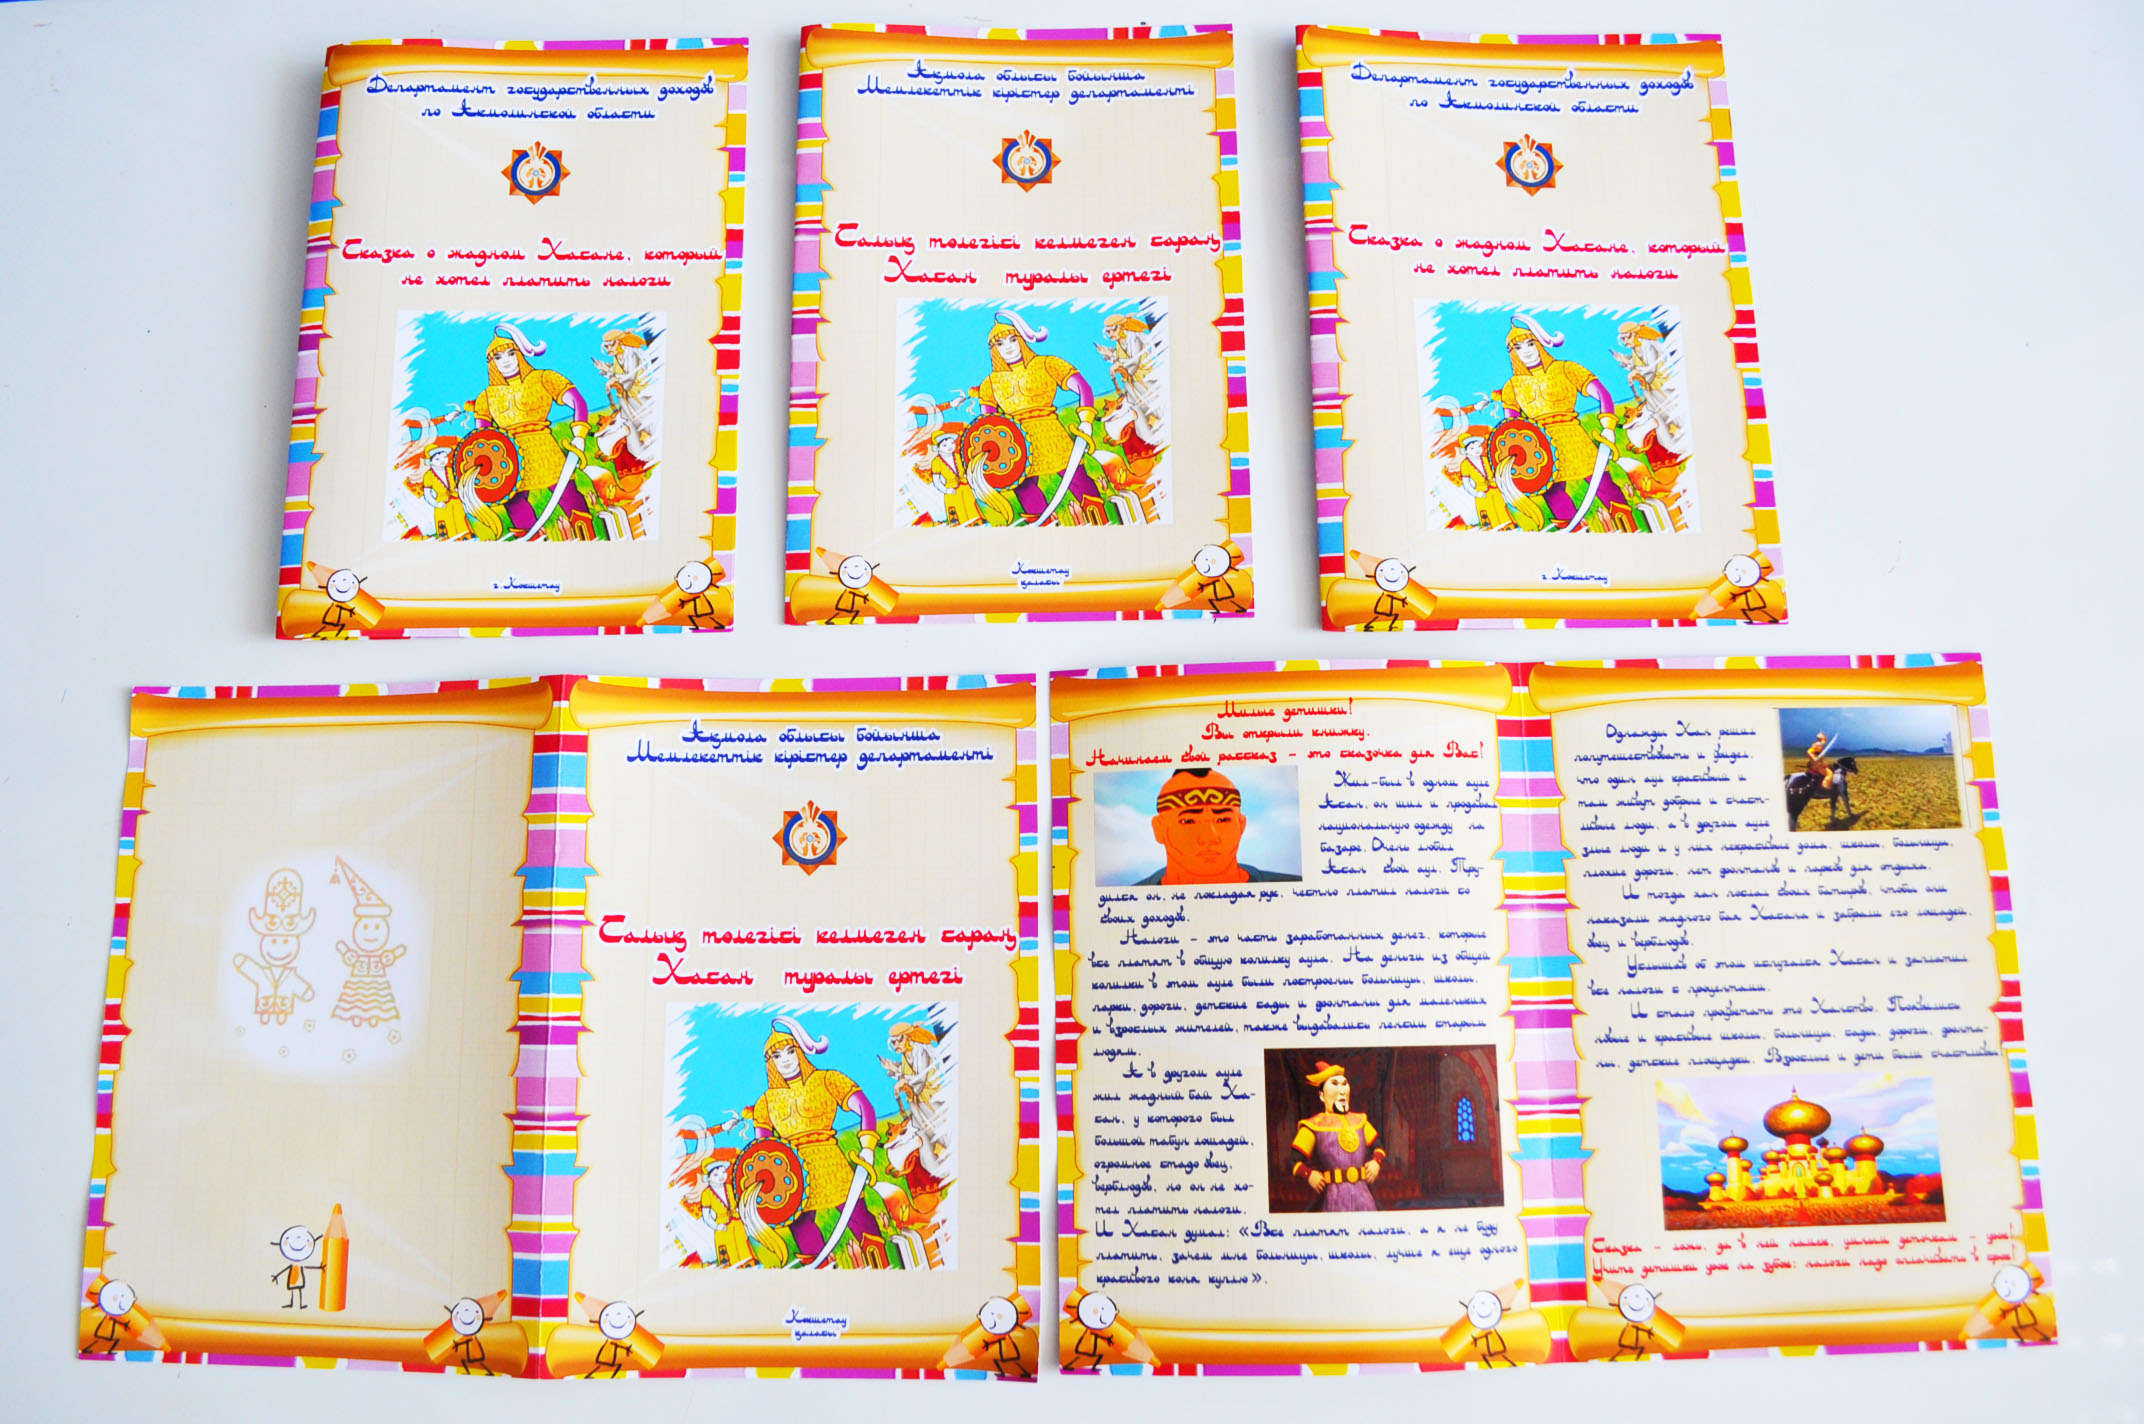 Департамент государственных доходов
по Акмолинской области
Сказка о жадном Хасане, который
не хотел платить налоги
г.Кокшетау
Ақмола облысы бойынша
Мемлекеттік кірістер департаменті
Салық төлегісі келмеген сараң
Хасан туралы ертегі
Көкшетау
қаласы
Департамент государственных доходов
по Акмолинской области
Сказка о жадном Хасане, который
не хотел платить налоги
г.Кокшетау
Ақмола облысы бойынша
Мемлекеттік кірістер департаменті
Салық төлегісі келмеген сараң
Хасан туралы ертегі
Көкшетау
қаласы
Милые детишки!
Вы открыли книжку.
Начинаем свой рассказ - это сказочка для Вас!
Жил-был в одном ауле
Асан, он шил и продавал
национальную одежду на
базаре. Очень любил
Асан свой аул. Тру-
дился он, не покладая рук, честно платил налоги со
своих доходов.
Налоги - это часть заработанных денег, которые
все платят в общую копилку аула. На деньги из общей
копилки в этом ауле были построены больницы, школы,
парки, дороги, детские сады и фонтаны для маленьких
и взрослых жителей, также выдавались пенсии старым
людям.
А в другом ауле
жил жадный бай Ха-
сан, у которого был
большой табун лошадей,
огромное стадо овец,
верблюдов, но он не хо-
тел платить налоги.
И Хасан думал: «Все платят налоги, а я не буду
платить, зачем мне больницы, школы, лучше я еще одного
красивого коня куплю».
Однажды Хан решил
попутешествовать и увидел,
что один аул красивый и
там живут добрые и счаст-
ливые люди, а в другом ауле
злые люди и у них некрасивые дома, школы, больницы,
плохие дороги, нет фонтанов и парков для отдыха.
И тогда хан послал своих батыров, чтобы они
наказали жадного бая Хасана и забрали его лошадей,
овец и верблюдов.
Услышав об этом испугался Хасан и заплатил
все налоги с процентами.
И стало процветать это Ханство. Появились
новые и красивые школы, больницы, сады, дороги, фонта-
ны, детские площадки. Взрослые и дети были счастливы!
Сказка - ложь, да в ней намек, умным деточкам - урок!
Учите детишки урок на зубок: налоги надо оплачивать в срок!